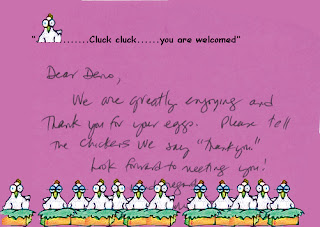 ".......Cluck cluck......you are welcomed"
Dear Deno,
We are greatly enjoying and
Thank you for your eggs. Please tell
The Chickens we say "Thank you"
Look forward to meeting you!